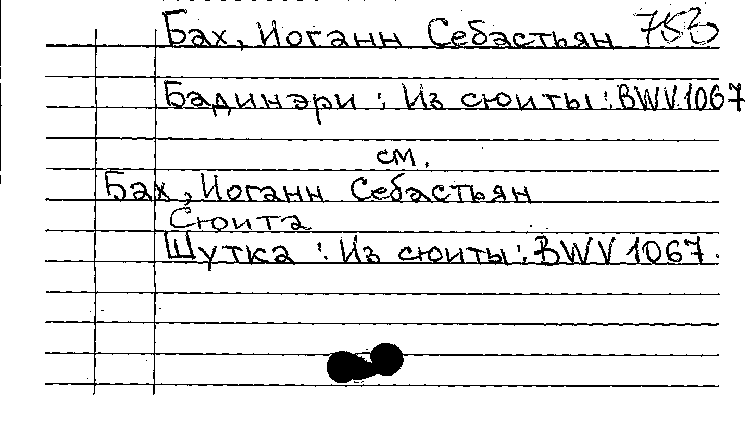 Бах, Иоганн Себастьян
Бадинэри : Из сюиты : BWV.1067
см.
Бах, Иоганн Себастьян
Сюита
Шутка : Из сюиты : BWV 1067.